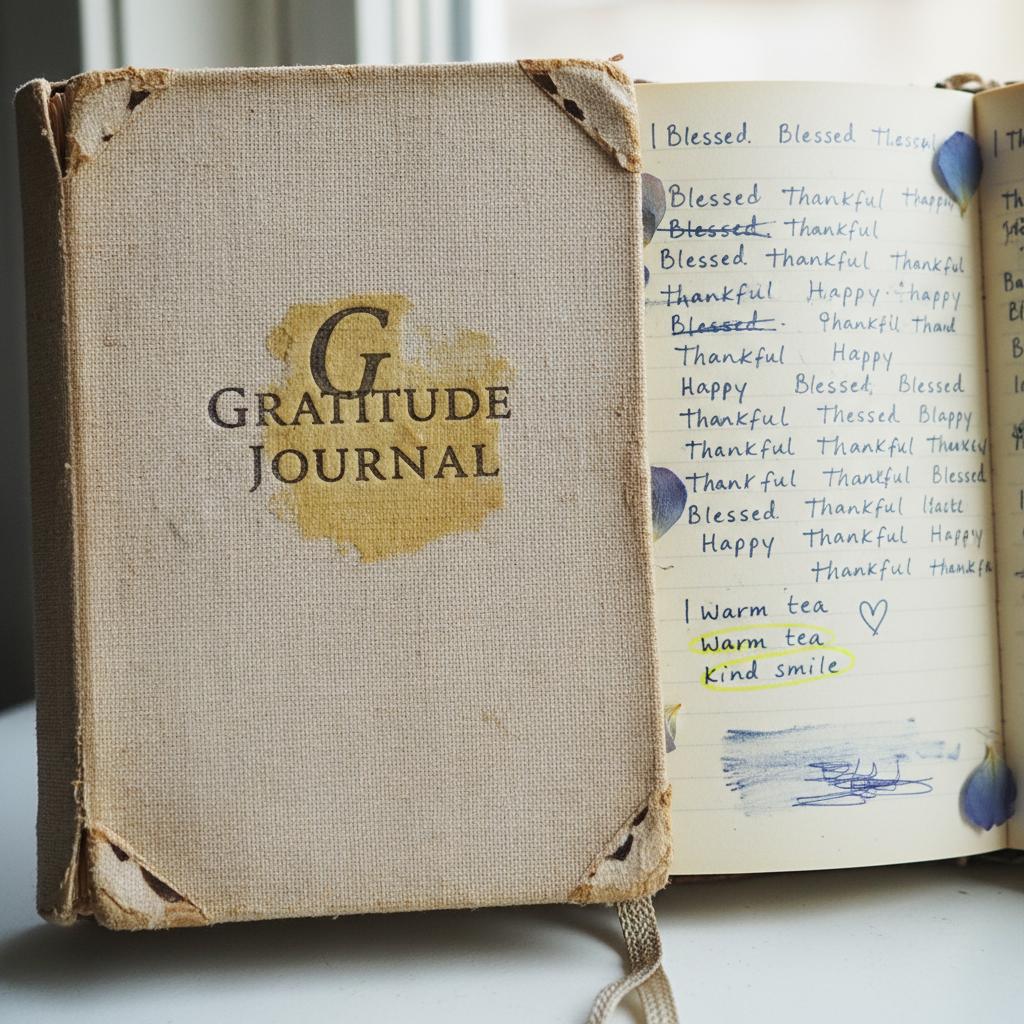 G
GRATITUDE
JOURNAL
| Blessed. Blessed
Blessed Thankful
Blessed. Thankful
Blessed. Thankful Thankful
Thankful Happy. happy
Blessed.
Thankful Happy
Happy Blessed, Blessed
Thankful Thessed Blappy
Thankful Thankful
Thankful Thankful Blessed
Blessed. Thankful
Happy Thankful Happy
Thankful
| Warm tea
Warm tea
Kind smile